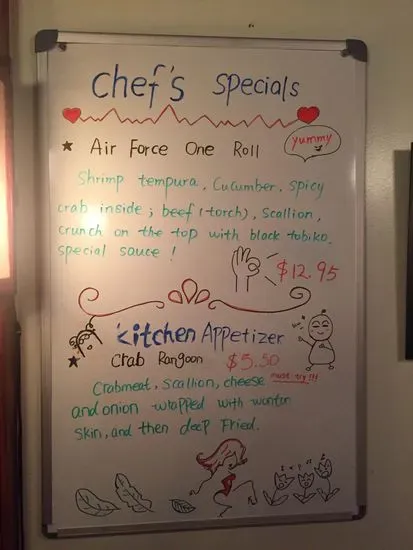 chef's specials
yummy
★ Air Force One Roll
Shrimp tempura, Cucumber, spicy
crab inside; beef (torch), scallion,
crunch on the top with black tobiko.
special sauce!
$12.95
kitchen Appetizer
★ Crab Rangoon $5.50
must try!!!
Crabmeat, scallion, cheese
and onion wrapped with wonton
skin, and then deep fried.